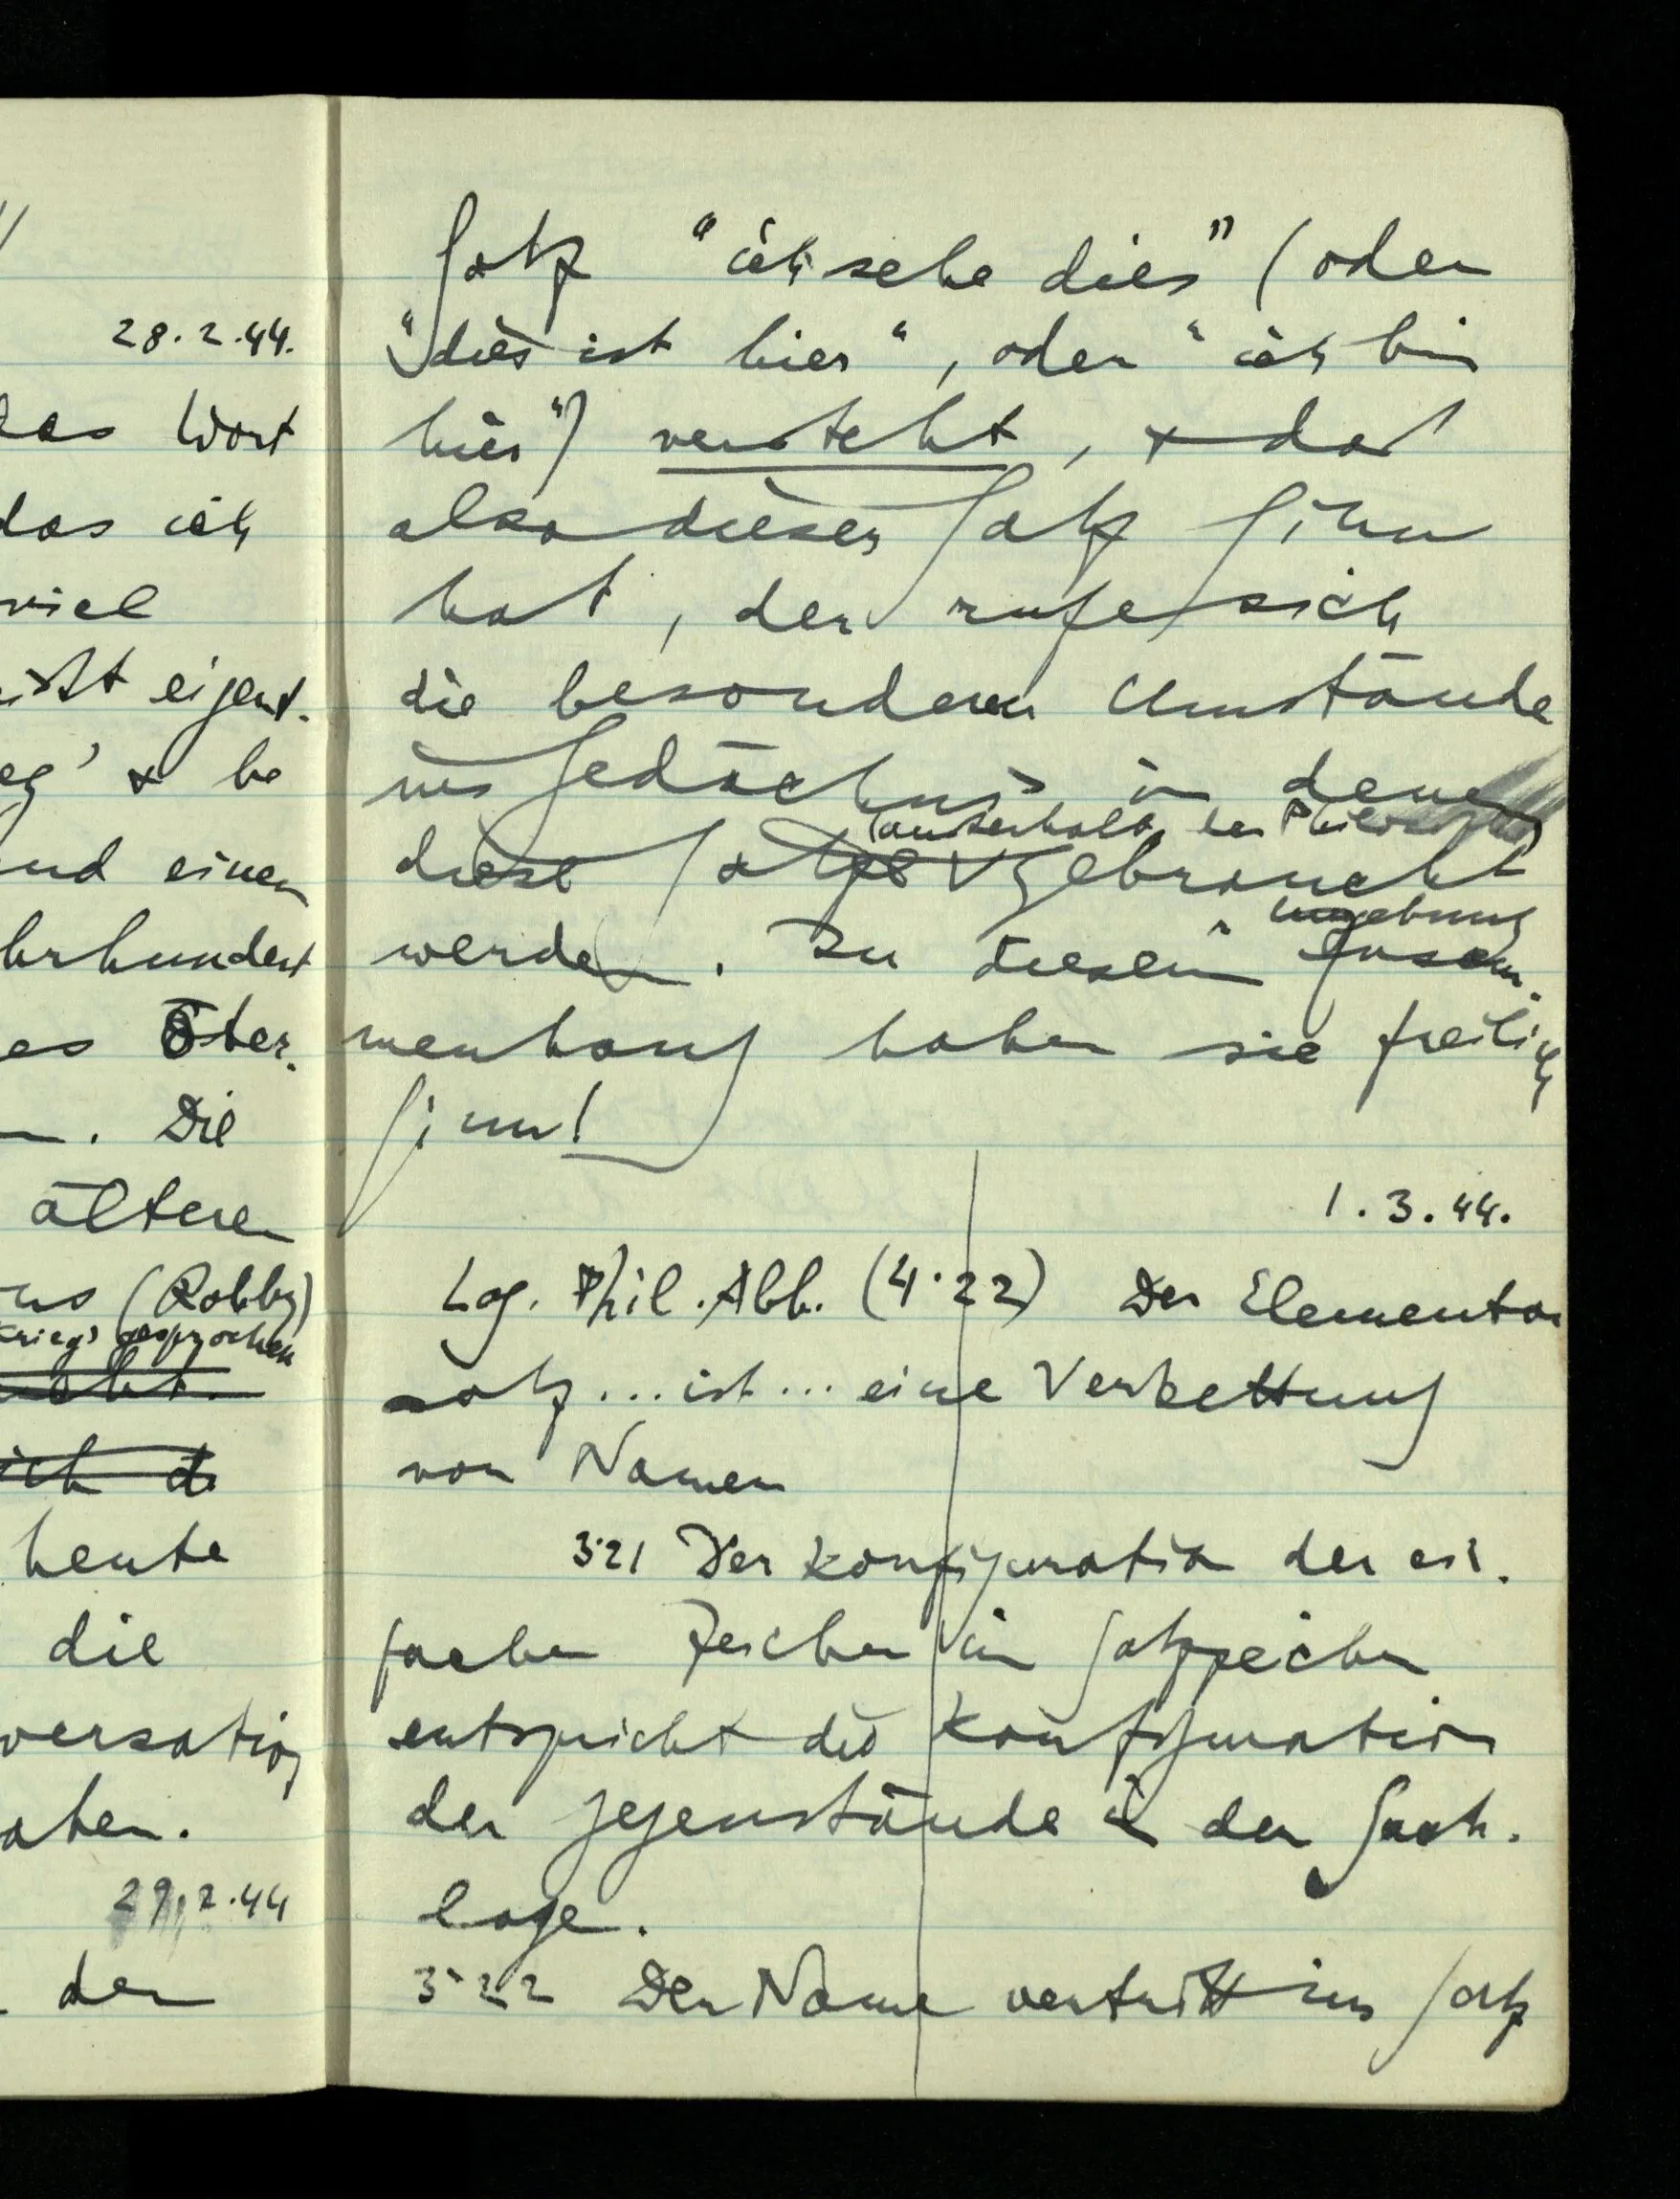 28.2.44.
das Wort
das ich
viel
ist eigent-
eg' & be
und einen
hrhundert
es Öster-
. Die
älteren
us (Robby)
Kriegs gesprochen
ich d
heute
die
versation
aben.
29.2.44
der
Satz "ich sehe dies" (oder
"dies ist hier", oder "ich bin
hier") versteht, & daß
also dieser Satz Sinn
hat, der rufe sich
die besonderen Umstände
ins Gedächtnis in denen
außerhalb der Philosophie
diese Sätze gebraucht
werden. In diesem
Umgebung
Zusam-
menhang haben sie freilich
Sinn!
1.3.44.
Log. Phil. Abh. (4·22) Der Elementar
satz ... ist ... eine Verkettung
von Namen
3·21 Der Konfiguration der ein-
fachen Zeichen im Satzzeichen
entspricht die Konfiguration
der Gegenstände in der Sach-
lage.
3·22 Der Name vertritt im Satz